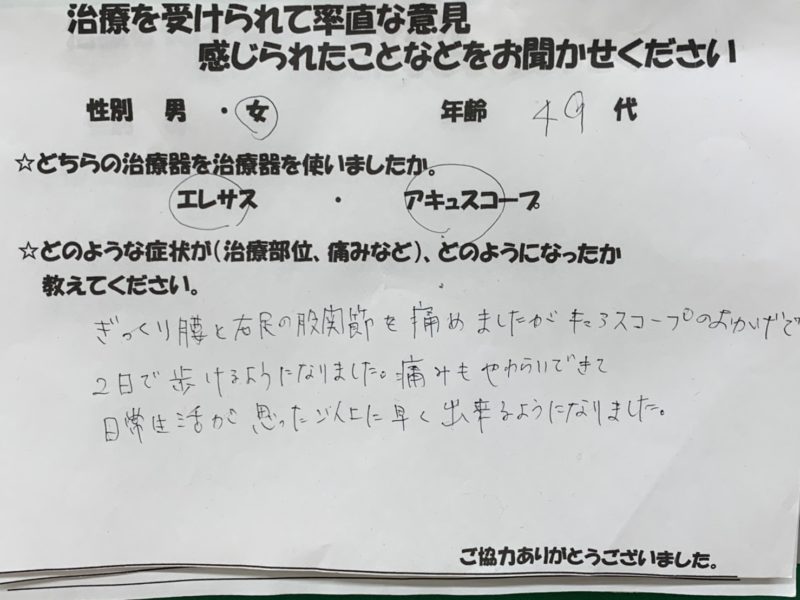 治療を受けられて率直な意見
感じられたことなどをお聞かせください
性別 男 ・ 女 年齢 49 代
☆どちらの治療器を治療器を使いましたか。
エレサス ・ アキュスコープ
☆どのような症状が(治療部位、痛みなど)、どのようになったか
教えてください。
ぎっくり腰と右足の股関節を痛めましたが スコープのおかげで
2日で歩けるようになりました。痛みもやわらいできて
日常生活が思った以上に早く出来るようになりました。
ご協力ありがとうございました。